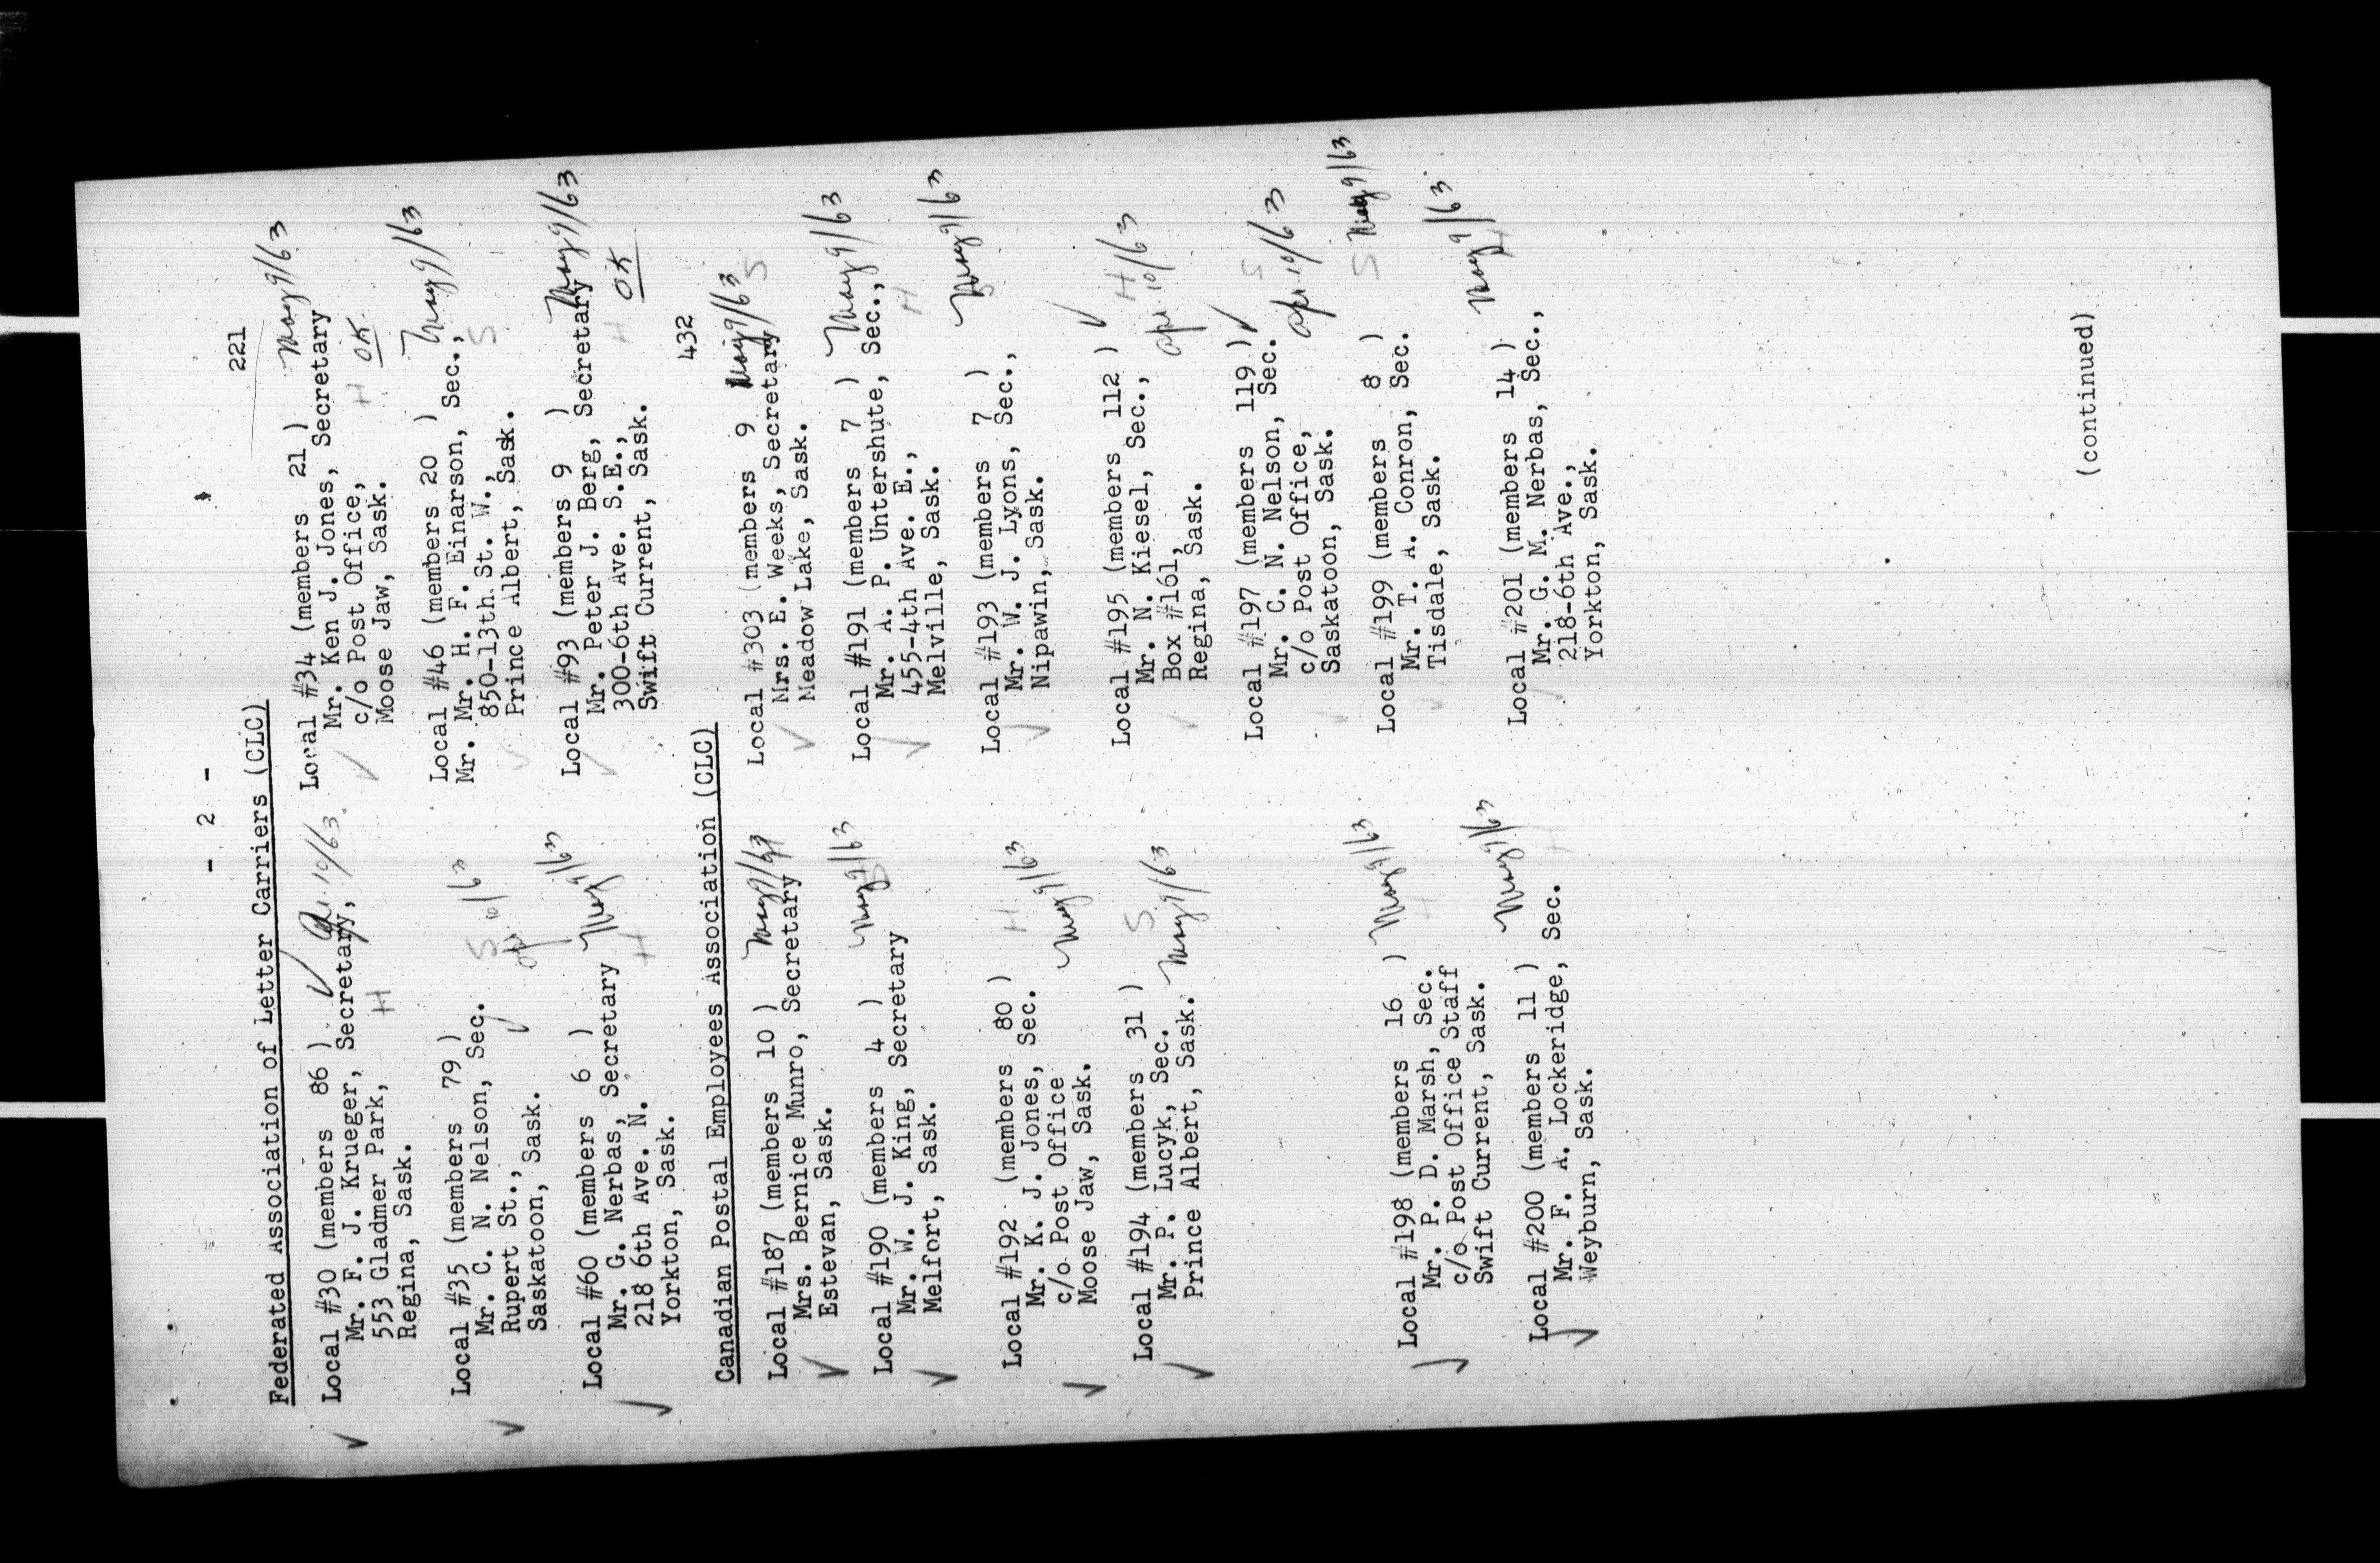 - 2 -
Federated Association of Letter Carriers (CLC) 221
Local #30 (members 86 ) ✓ Apr. 10/63
Mr. F. J. Krueger, Secretary,
553 Gladmer Park, H
Regina, Sask.
Local #34 (members 21 ) May 9/63
Mr. Ken J. Jones, Secretary
c/o Post Office, OK
Moose Jaw, Sask. H
Local #35 (members 79 )
Mr. C. N. Nelson, Sec. S Apr 10/63
Rupert St., ✓
Saskatoon, Sask.
Local #46 (members 20 ) May 9/63
Mr. Mr. H. F. Einarson, Sec.,
850-13th St. W., S
Prince Albert, Sask.
Local #60 (members 6 ) May 9/63
Mr. G. Nerbas, Secretary
218 6th Ave. N. H
Yorkton, Sask.
Local #93 (members 9 ) May 9/63
Mr. Peter J. Berg, Secretary
300-6th Ave. S.E., H OK
Swift Current, Sask.
Canadian Postal Employees Association (CLC) 432
Local #187 (members 10 ) May 9/63
Mrs. Bernice Munro, Secretary
Estevan, Sask.
Local #303 (members 9 May 9/63
Mrs. E. Weeks, Secretary S
Meadow Lake, Sask.
Local #190 (members 4 ) May 9/63
Mr. W. J. King, Secretary S
Melfort, Sask.
Local #191 (members 7 ) May 9/63
Mr. A. P. Untershute, Sec.,
455-4th Ave. E., H
Melville, Sask.
Local #192 (members 80 ) H
Mr. K. J. Jones, Sec. May 9/63
c/o Post Office
Moose Jaw, Sask.
Local #193 (members 7 ) May 9/63
Mr. W. J. Lyons, Sec., S
Nipawin, Sask.
Local #194 (members 31 ) S
Mr. P. Lucyk, Sec. May 9/63
Prince Albert, Sask.
Local #195 (members 112 ) ✓ H
Mr. N. Kiesel, Sec., Apr 10/63
Box #161,
Regina, Sask.
Local #197 (members 119 ) ✓ S
Mr. C. N. Nelson, Sec. Apr 10/63
c/o Post Office,
Saskatoon, Sask.
Local #198 (members 16 ) May 9/63
Mr. P. D. Marsh, Sec. H
c/o Post Office Staff
Swift Current, Sask.
Local #199 (members 8 ) S May 9/63
Mr. T. A. Conron, Sec.
Tisdale, Sask.
Local #200 (members 11 ) May 9/63
Mr. F. A. Lockeridge, Sec. H
Weyburn, Sask.
Local #201 (members 14 ) May 9/63
Mr. G. M. Nerbas, Sec., H
218-6th Ave.,
Yorkton, Sask.
(continued)